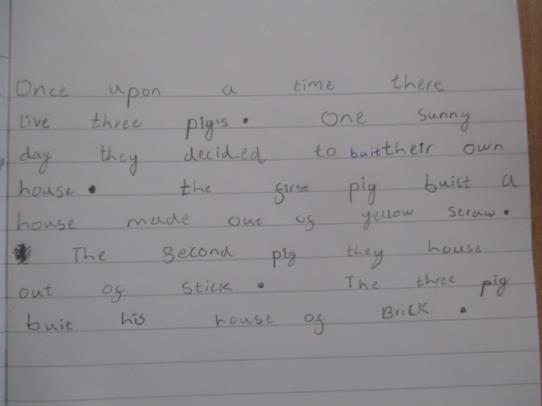 Once upon a time there
live three pig's. One sunny
day they decided to buit their own
house. the first pig built a
house made out of yellow straw.
The second pig they house
out of stick. The three pig
buit his house of Brick.